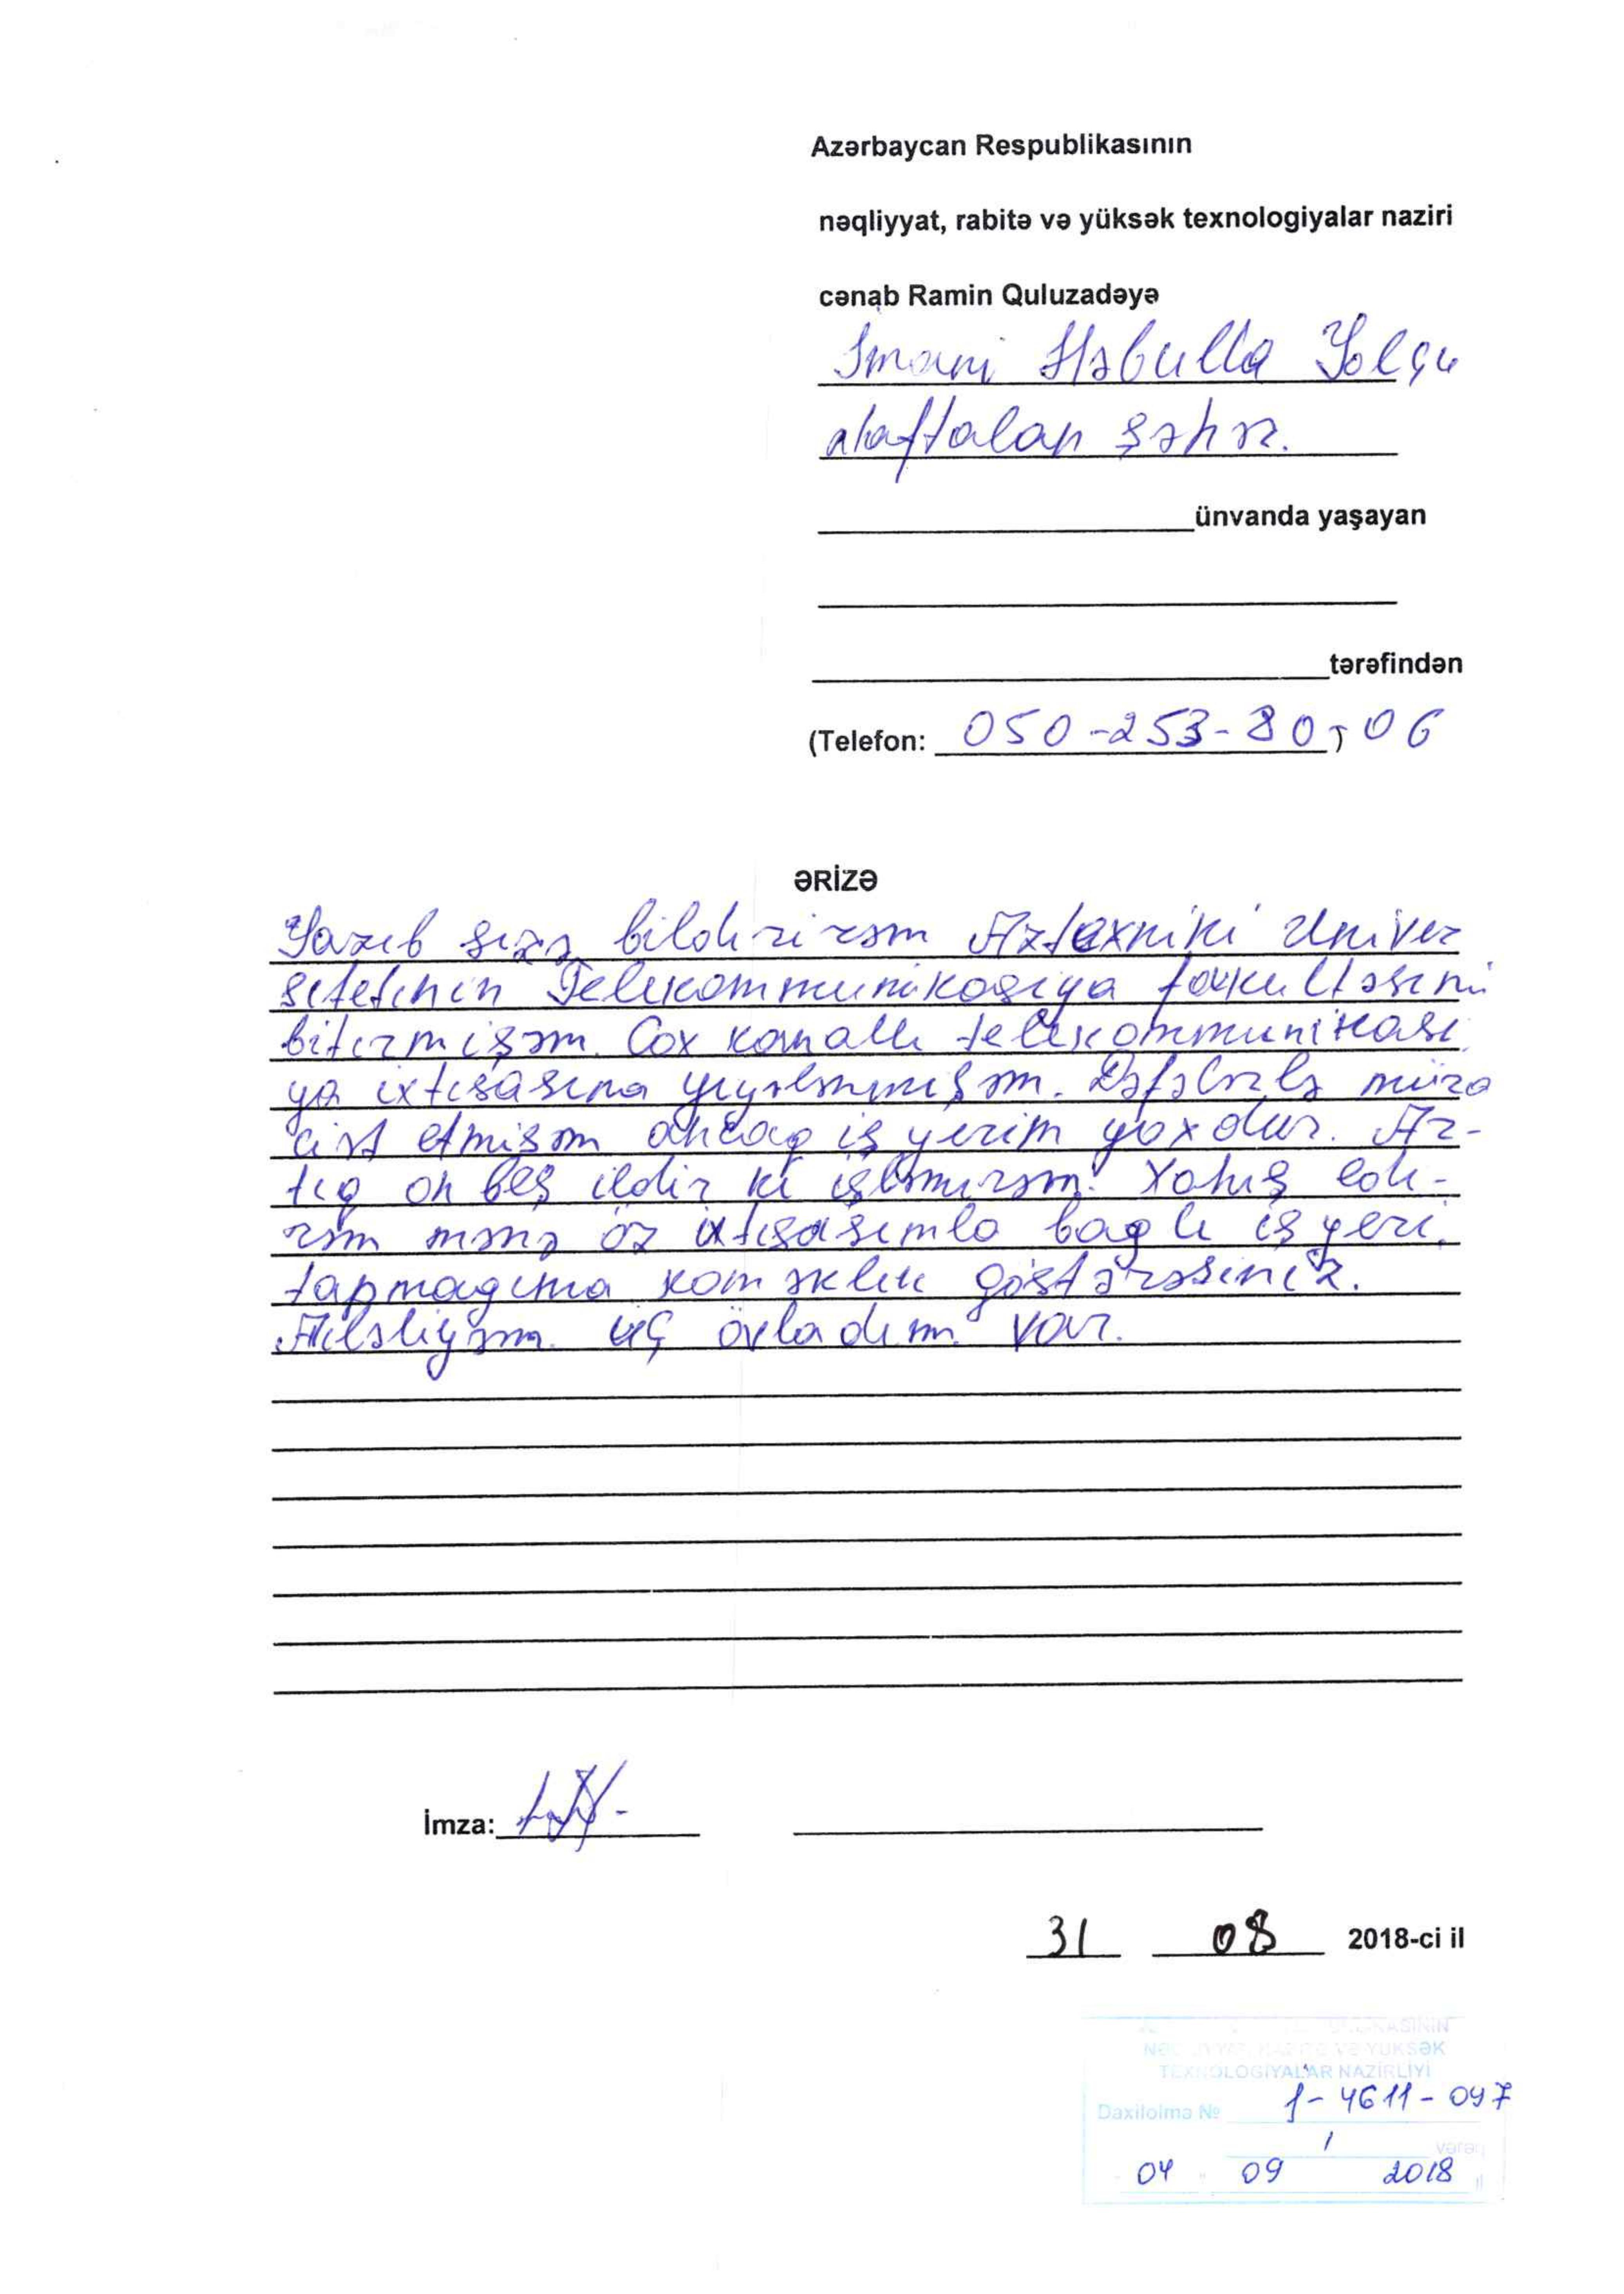 Azərbaycan Respublikasının
nəqliyyat, rabitə və yüksək texnologiyalar naziri
cənab Ramin Quluzadəyə
İmani Həbulla Yolçu
Naftalan şəhər.
ünvanda yaşayan
tərəfindən
(Telefon: 050-253-80-06
ƏRİZƏ
Yazıb sizə bildirirəm Aztexniki Univer
sitetinin Telekommunikasiya fakultəsini
bitirmişəm. Cox kanallı telekommunikasi
ya ixtisasına yiyələnmişəm. Dəfələrlə müra
ciət etmişəm ancaq iş yerim yoxdur. Ar-
tıq on beş ildir ki işləmirəm. Xahiş edi-
rəm mənə öz ixtisasımla bağlı iş yeri
tapmağıma koməklik göstərəsiniz.
Ailəliyəm. üç övladım var.
İmza:
31 08 2018-ci il
TEXNOLOGİYALAR NAZİRLİYİ
Daxilolma № 1-4611-047
1 vərəq
04 09 2018 il